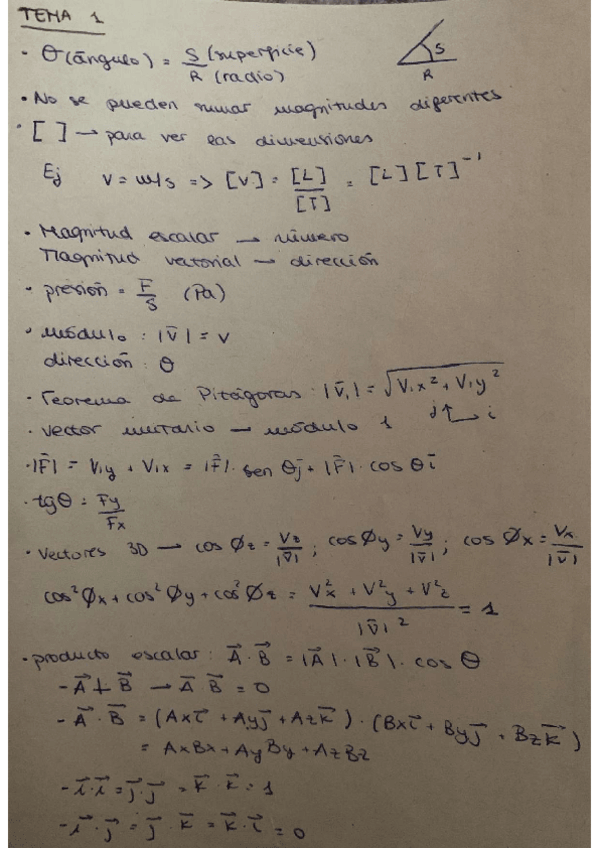 TEMA 1
· θ (ángulo) = S (superficie) / R (radio)
S
R
· No se pueden sumar magnitudes diferentes
· [ ] → para ver las dimensiones
Ej v = m/s => [V] = [L] / [T] = [L] [T]⁻¹
· Magnitud escalar → número
Magnitud vectorial → dirección
· presión = F / S (Pa)
· módulo : |v̄| = v
dirección : θ
· Teorema de Pitágoras : |v̄₁| = √(V₁x² + V₁y²)
j i
· Vector unitario → módulo 1
· |F̄| = V₁y + V₁x = |F̄| · sen θj̄ + |F̄| · cos θī
· tgθ = Fy / Fx
· Vectores 3D → cos Øz = Vz / |v̄| ; cos Øy = Vy / |v̄| ; cos Øx = Vx / |v̄|
cos² Øx + cos² Øy + cos² Øz = (V²x + V²y + V²z) / |v̄|² = 1
· producto escalar : A⃗ · B⃗ = |A⃗| · |B⃗| · cos θ
- A⃗ ⊥ B⃗ → A⃗ B⃗ = 0
- A⃗ · B⃗ = (Ax i⃗ + Ay j⃗ + Az k⃗) · (Bx i⃗ + By j⃗ + Bz k⃗)
= AxBx + AyBy + AzBz
- i⃗ · i⃗ = j⃗ · j⃗ = k⃗ · k⃗ = 1
- i⃗ · j⃗ = j⃗ · k⃗ = k⃗ · i⃗ = 0